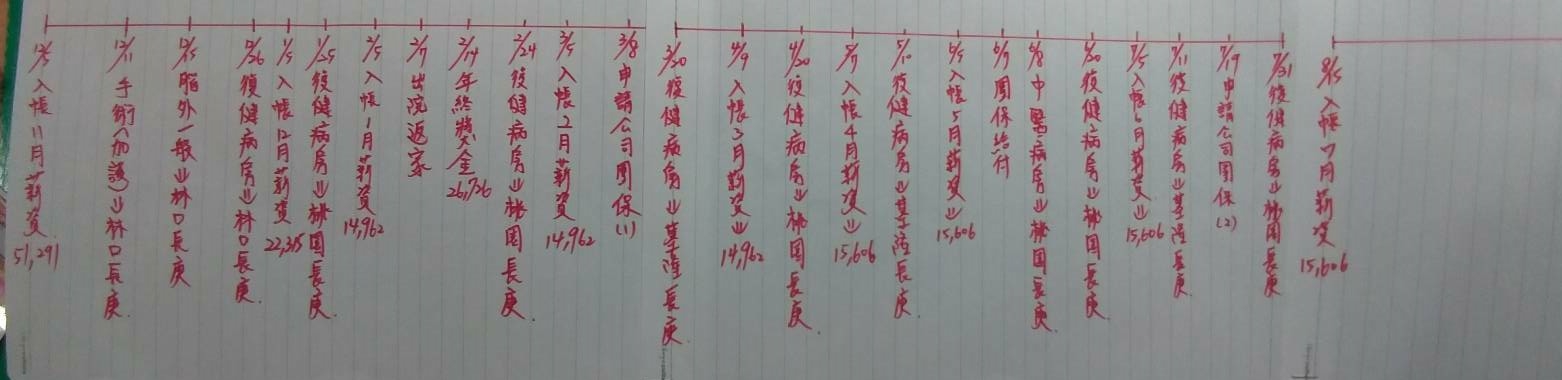 12/5 入帳11月薪資 51,291
12/11 手術(加護)⇒林口長庚.
12/15 腦外一般⇒林口長庚
12/26 復健病房⇒林口長庚.
1/5 入帳12月薪資 22,315
1/25 復健病房⇒桃園長庚.
2/5 入帳1月薪資 14,962
2/7 出院返家
2/14 年終獎金 26,726
2/24 復健病房⇒桃園長庚.
3/5 入帳2月薪資 14,962
3/8 申請公司團保(1)
3/20 復健病房⇒基隆長庚.
4/9 入帳3月薪資⇒14,962
4/20 復健病房⇒桃園長庚.
5/7 入帳4月薪資⇒15,606
5/10 復健病房⇒基隆長庚.
6/5 入帳5月薪資⇒15,606
6/7 團保給付
6/8 中醫病房⇒桃園長庚.
6/20 復健病房⇒桃園長庚.
7/5 入帳6月薪資⇒15,606
7/11 復健病房⇒基隆長庚.
7/19 申請公司團保(2)
7/31 復健病房⇒桃園長庚
8/5 入帳7月薪資 15,606